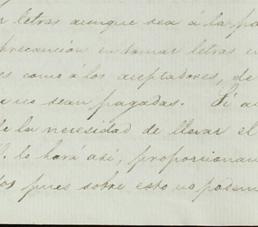 letras aunque sea á la pa
precaucion en tomar letras en
es como á los aceptadores, de
no sean pagadas. Si a
de la necesidad de llevar el
lo hará asi, proporcionan
pues sobre esto no podem